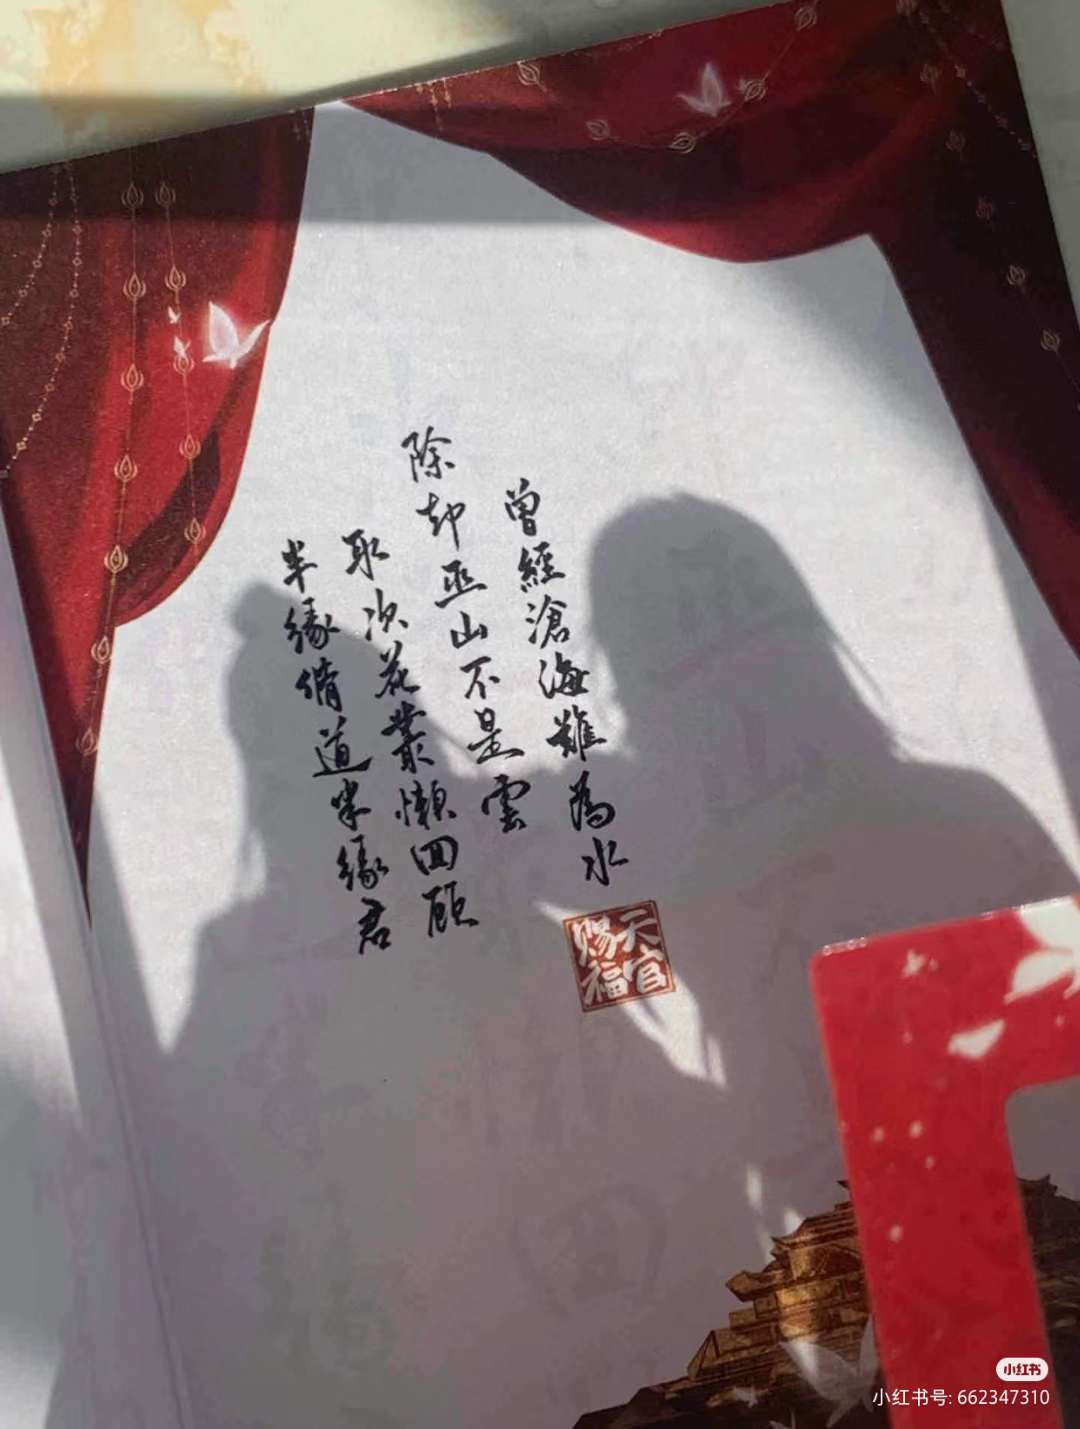 曾經滄海難為水
除却巫山不是雲
取次花叢懶回顧
半緣脩道半緣君
天官
赐福
小红书
小红书号: 662347310